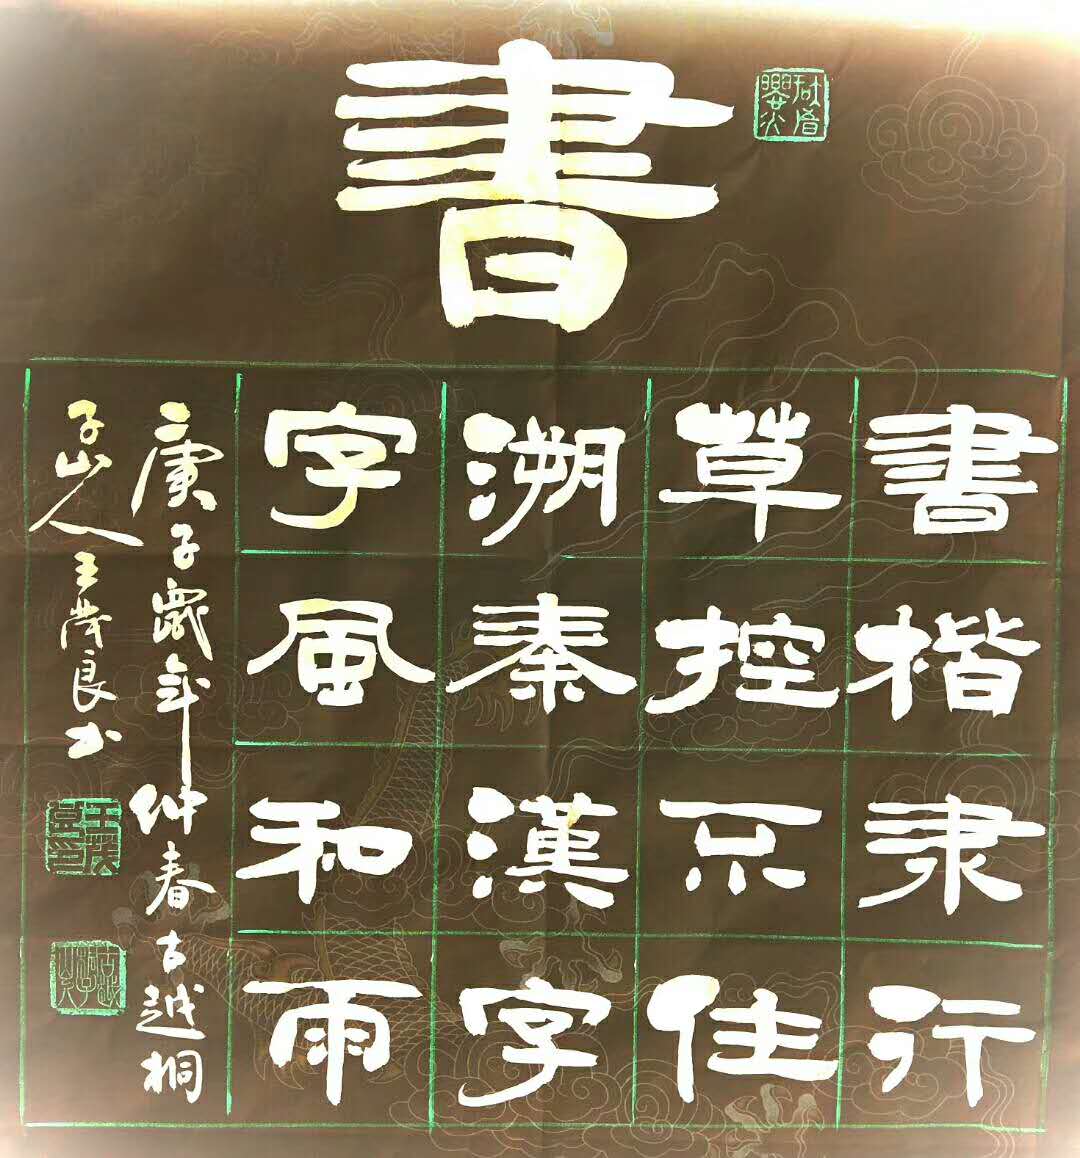 書
書楷隶行
草控不住
溯秦漢字
字風和雨
庚子歲年仲春古越桐
子山人王茂良书